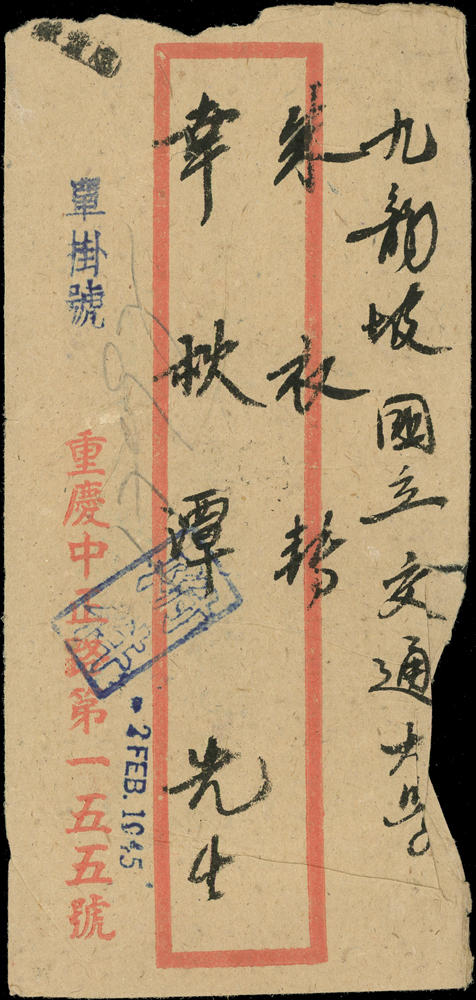 九龍坡國立交通大學
朱衣轉
韋秋潭先生
單掛號
重慶中正路第一五五號
2 FEB. 1945